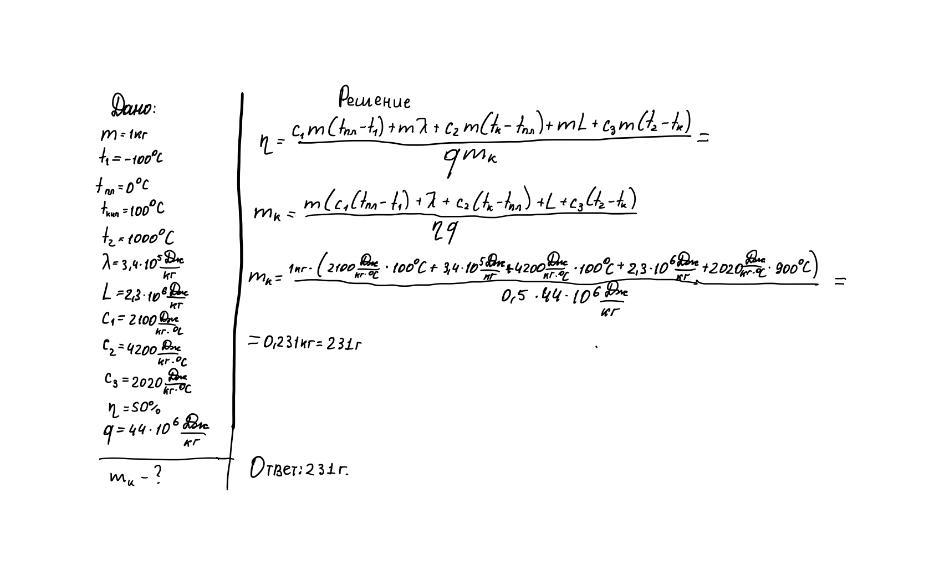 Дано:
m = 1кг
t₁ = -100°C
tпл = 0°C
tкип = 100°C
t₂ = 1000°C
λ = 3,4·10⁵ Дж/кг
L = 2,3·10⁶ Дж/кг
C₁ = 2100 Дж/кг·°C
C₂ = 4200 Дж/кг·°C
C₃ = 2020 Дж/кг·°C
η = 50%
q = 44·10⁶ Дж/кг
mк - ?
Решение
η = (c₁m(tпл-t₁)+mλ+c₂m(tк-tпл)+mL+c₃m(t₂-tк))/(qmк) =
mк = m(c₁(tпл-t₁)+λ+c₂(tк-tпл)+L+c₃(t₂-tк)/(ηq)
mк = 1кг·(2100 Дж/кг·°C · 100°C + 3,4·10⁵ Дж/кг + 4200 Дж/кг·°C · 100°C + 2,3·10⁶ Дж/кг + 2020 Дж/кг·°C · 900°C)/(0,5·44·10⁶ Дж/кг) =
= 0,231кг = 231г
Ответ: 231г.